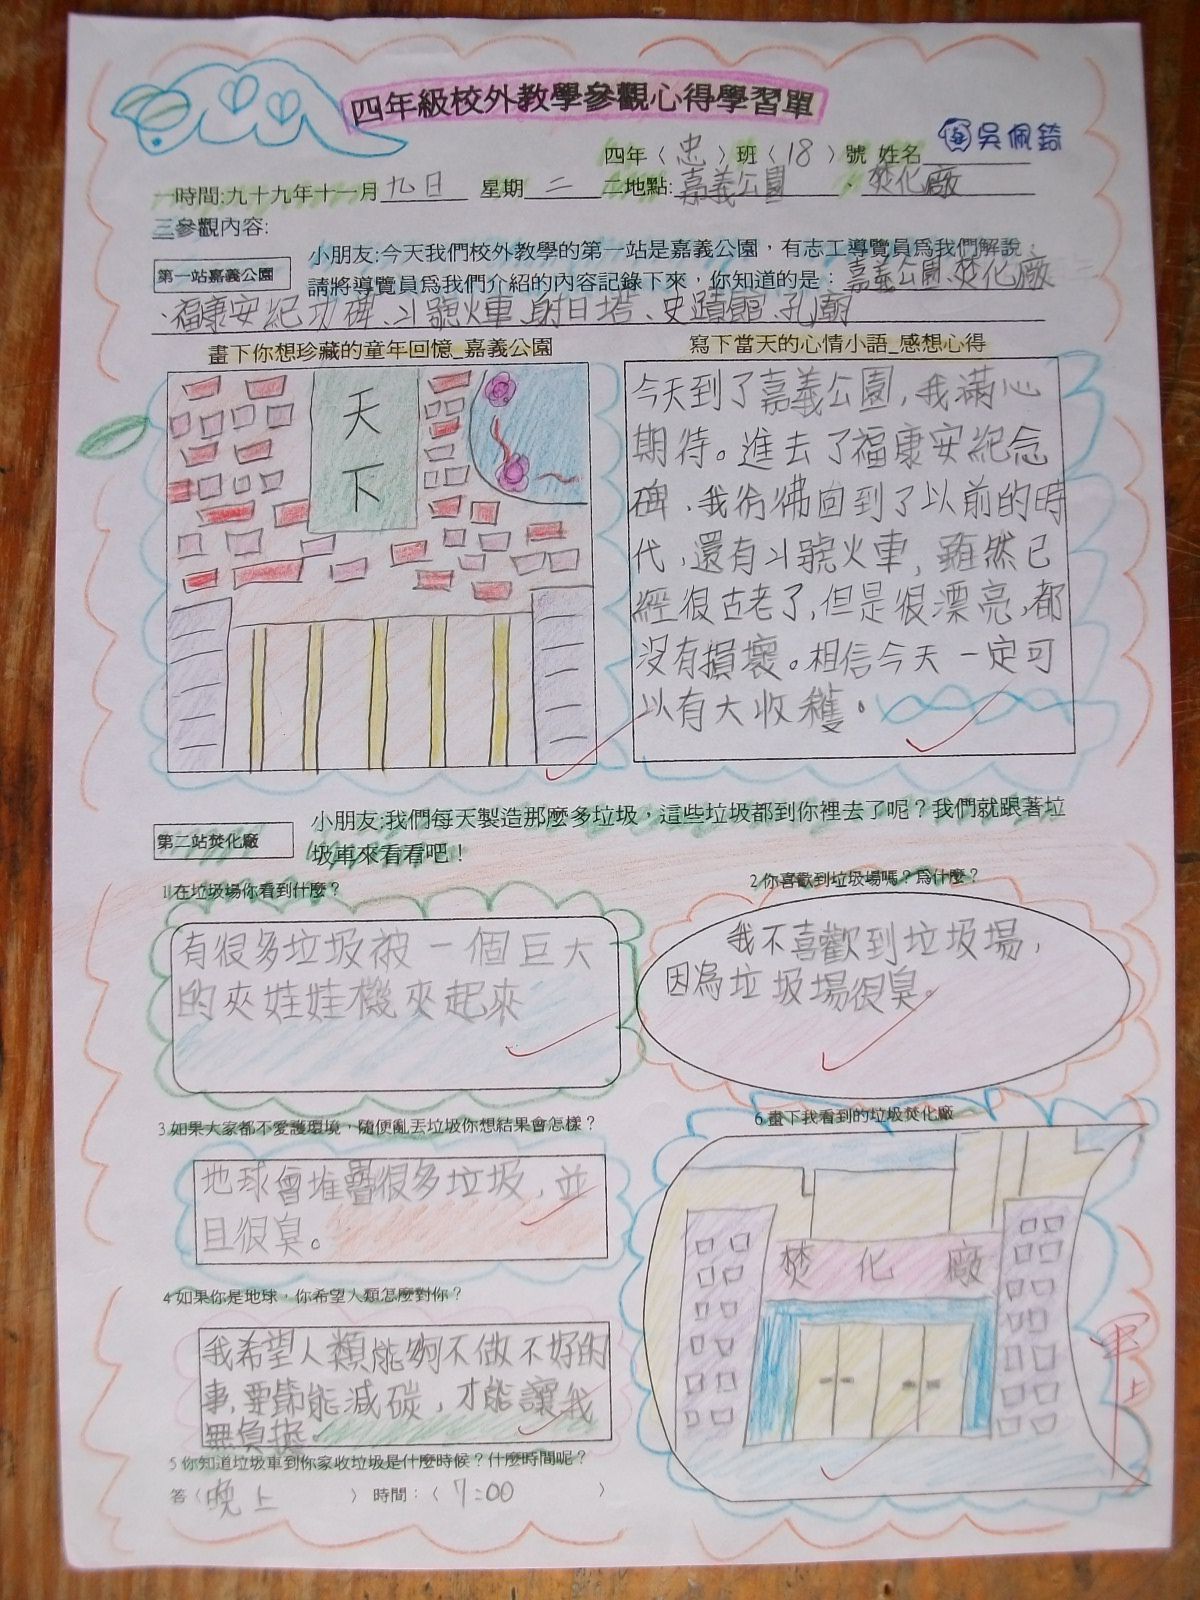 四年級校外教學參觀心得學習單
四年（忠）班（18）號 姓名 吳佩錡
一時間:九十九年十一月九日 星期二 二地點:嘉義公園、焚化廠
三參觀內容:
第一站嘉義公園
小朋友:今天我們校外教學的第一站是嘉義公園，有志工導覽員為我們解說，
請將導覽員為我們介紹的內容記錄下來，你知道的是：嘉義公園、焚化廠
、福康安紀功碑、J號火車、射日塔、史蹟館、孔廟
畫下你想珍藏的童年回憶_嘉義公園
天
下
寫下當天的心情小語_感想心得
今天到了嘉義公園，我滿心
期待。進去了福康安紀念
碑、我彷彿回到了以前的時
代，還有J號火車，雖然已
經很古老了，但是很漂亮，都
沒有損壞。相信今天一定可
以有大收穫。
第二站焚化廠
小朋友:我們每天製造那麼多垃圾，這些垃圾都到你裡去了呢？我們就跟著垃
圾車來看看吧！
1在垃圾場你看到什麼？
有很多垃圾被一個巨大
的夾娃娃機夾起來
2你喜歡到垃圾場嗎？為什麼？
我不喜歡到垃圾場，
因為垃圾場很臭。
3.如果大家都不愛護環境，隨便亂丟垃圾你想結果會怎樣？
地球會堆疊很多垃圾，並
且很臭。
4如果你是地球，你希望人類怎麼對你？
我希望人類能夠不做不好的
事，要節能減碳，才能讓我
無負擔。
5你知道垃圾車到你家收垃圾是什麼時候？什麼時間呢？
答（晚上） 時間：（7:00）
6畫下我看到的垃圾焚化廠
焚化廠
甲上